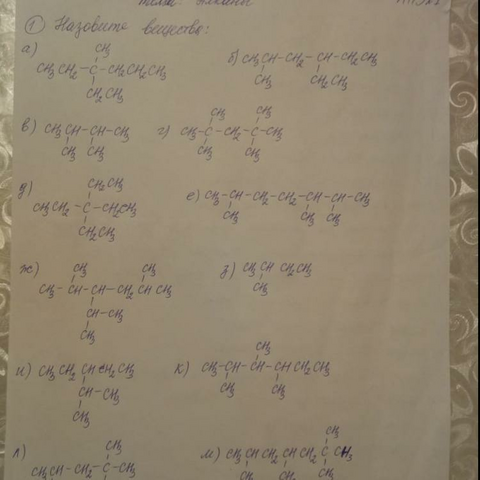 Тема: Алканы
① Назовите вещества:
а) CH₃
CH₃CH₂ - C - CH₂CH₂CH₃
CH₂CH₃
б) CH₃CH - CH₂ - CH - CH₂CH₃
CH₃ CH₂CH₃
в) CH₃CH - CH - CH₃
CH₃ CH₃
г) CH₃ CH₃
CH₃ - C - CH₂ - C - CH₃
CH₃ CH₃
д) CH₂CH₃
CH₃CH₂ - C - CH₂CH₃
CH₂CH₃
е) CH₃ - CH - CH₂ - CH₂ - CH - CH - CH₃
CH₃ CH₃ CH₃
ж) CH₃ CH₃
CH₃ - CH - CH - CH₂ CH CH₃
CH - CH₃
CH₃
з) CH₃ CH CH₂CH₃
CH₃
и) CH₃CH₂ CH CH₂CH₃
CH - CH₃
CH₃
к) CH₃
CH₃ - CH - CH - CH CH₂CH₃
CH₃ CH₃
л) CH₃
CH₃CH - CH₂ - C - CH₃
м) CH₃
CH₃CHCH₂CHCH₂ C CH₃
CH₃ CH₃ CH₃